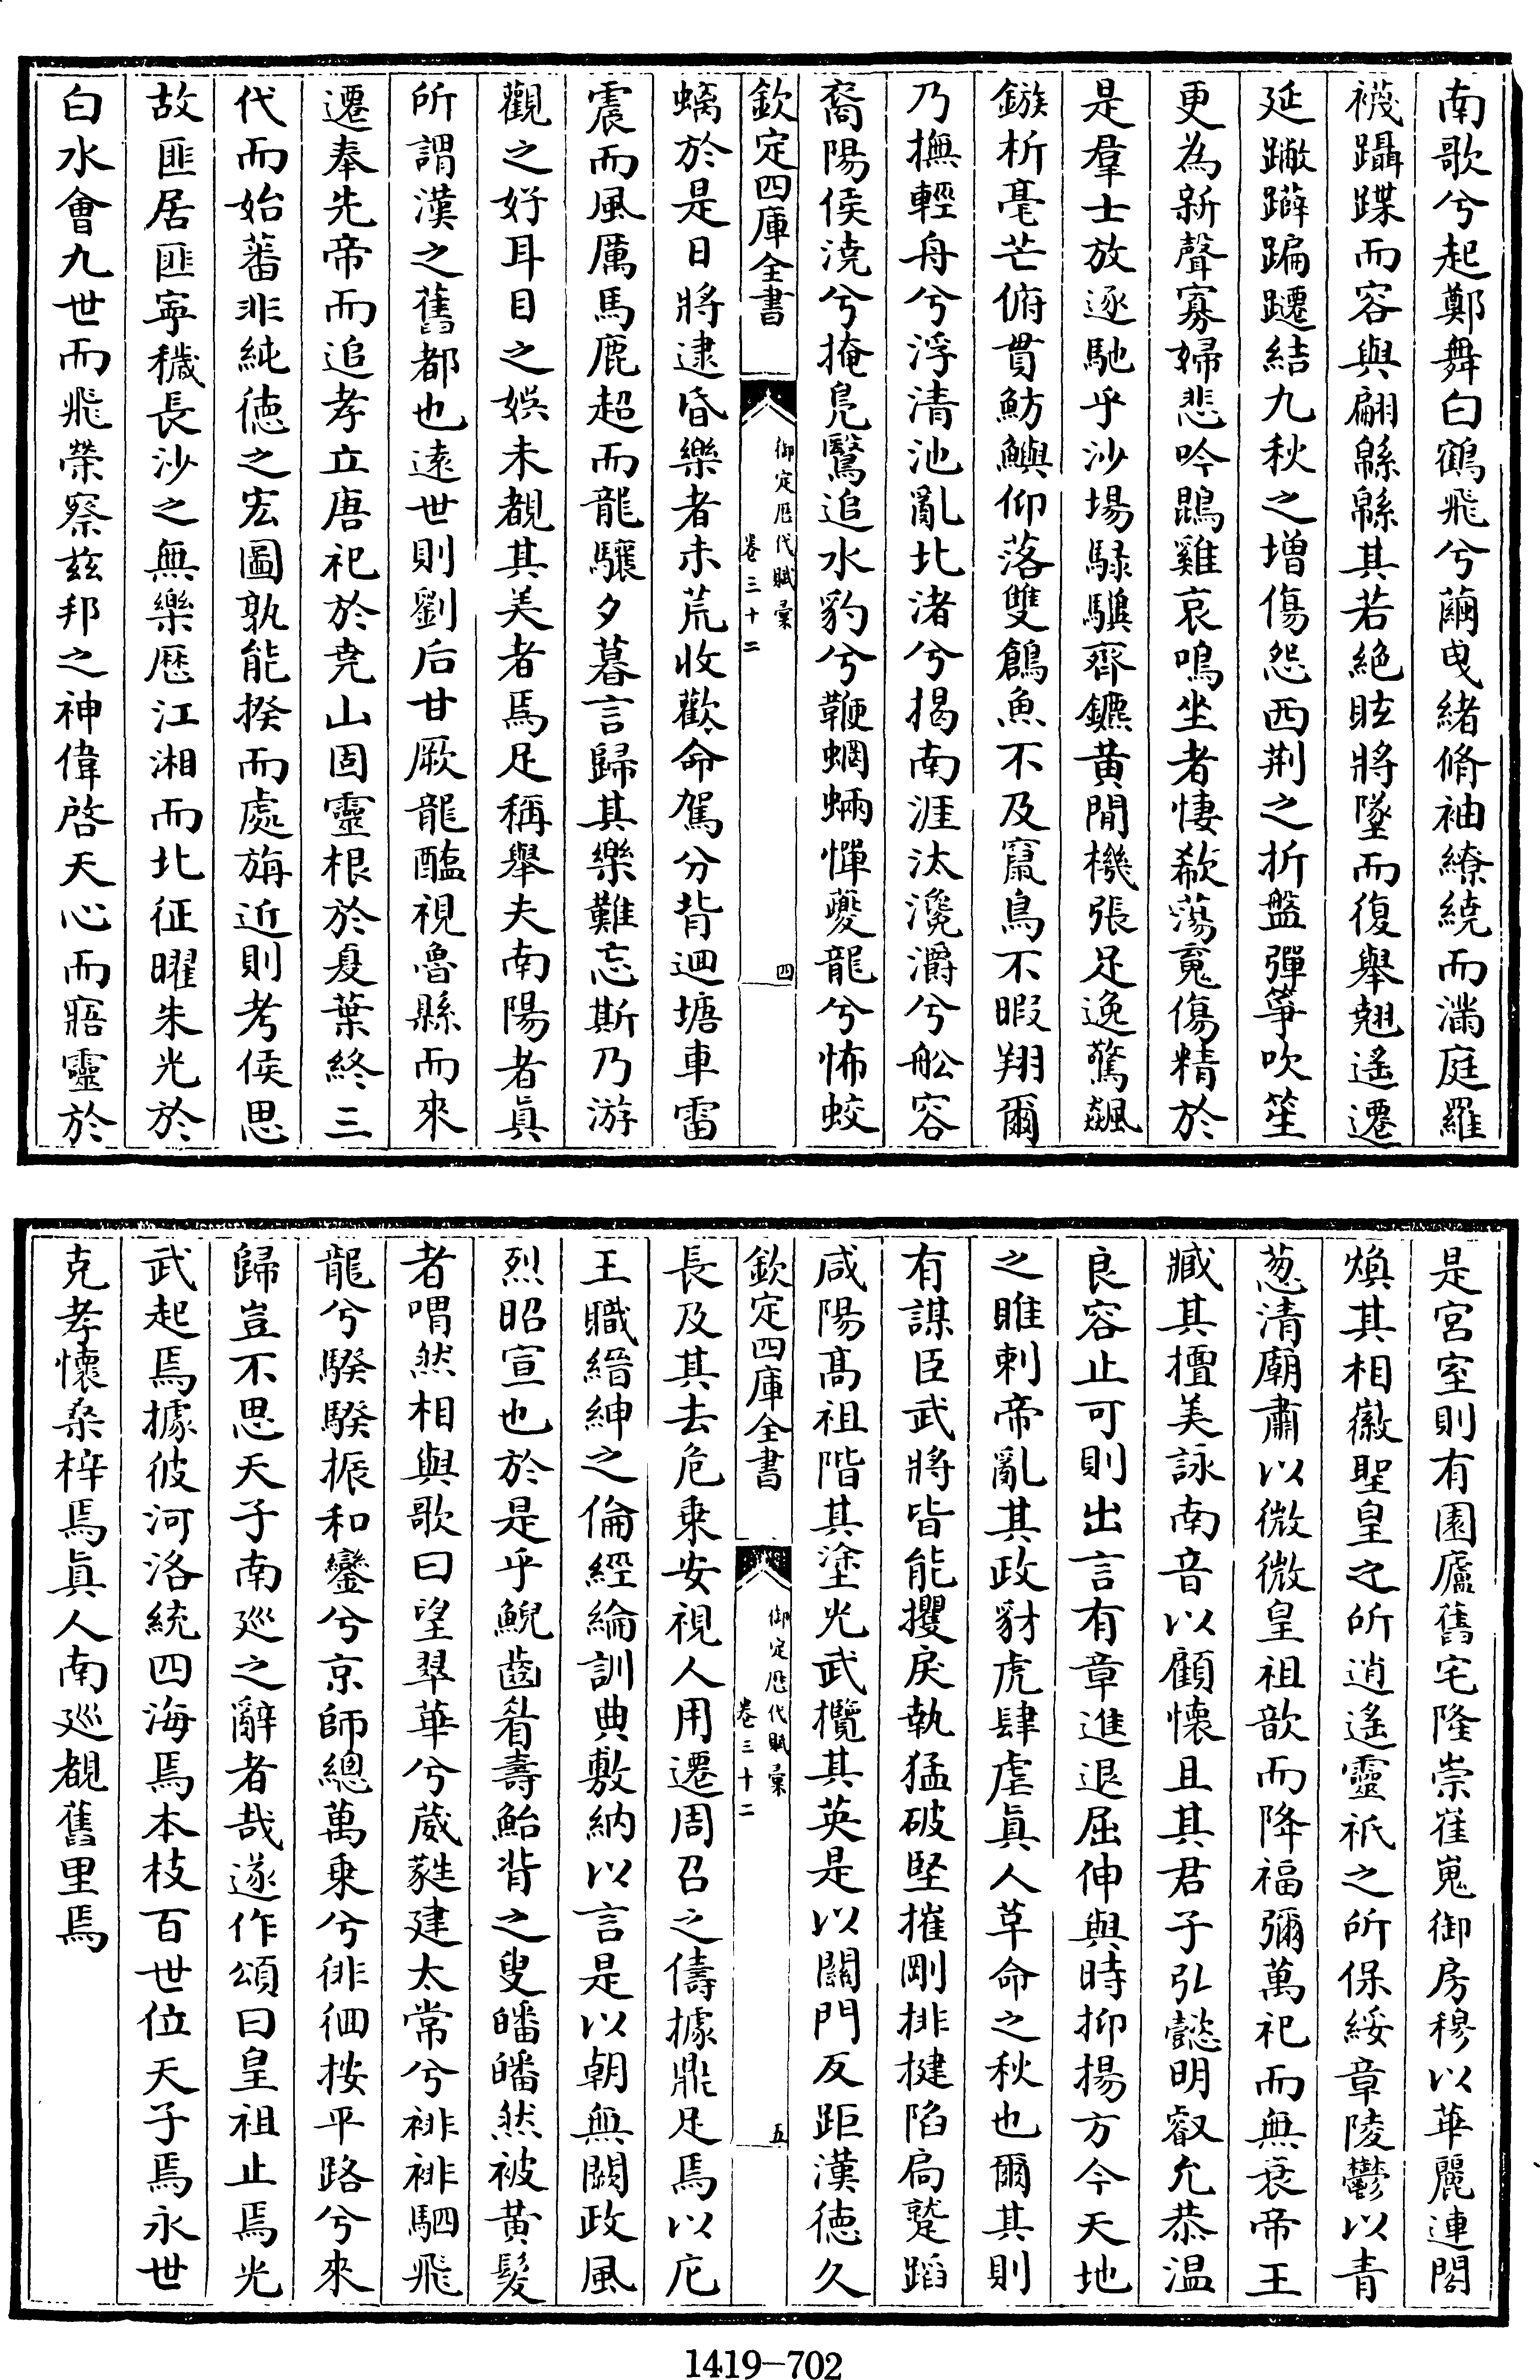 南歌兮起鄭舞白鶴飛兮繭曵緒脩袖繚繞而滿庭羅
襪躡蹀而容與翩緜緜其若絶眩將墜而復舉翹遙遷
延蹴躃蹁躚結九秋之増傷怨西荆之折盤彈箏吹笙
更為新聲寡婦悲吟鵾雞哀鳴坐者悽欷蕩䰟傷精於
是羣士放逐馳乎沙場騄驥齊鑣黄閒機張足逸驚飆
鏃析毫芒俯貫魴鱮仰落雙鶬魚不及竄鳥不暇翔爾
乃撫輕舟兮浮清池亂北渚兮揭南涯汰瀺灂兮舩容
裔陽侯澆兮掩鳧鷖追水豹兮鞭蝄蜽憚夔龍兮怖蛟
欽定四庫全書
御定歴代賦彚
卷三十二
四
螭於是日將逮昏樂者未荒收歡命駕分背迴塘車雷
震而風厲馬鹿超而龍驤夕暮言歸其樂難忘斯乃游
觀之好耳目之娯未覩其美者焉足稱舉夫南陽者眞
所謂漢之舊都也逺世則劉后甘厥龍醢視魯縣而來
遷奉先帝而追孝立唐祀於尭山固靈根於夏葉終三
代而始蕃非純徳之宏圖孰能揆而處旃近則考侯思
故匪居匪寧穢長沙之無樂歴江湘而北征曜朱光於
白水會九世而飛榮察兹邦之神偉啓天心而寤靈於
是宫室則有園廬舊宅隆崇崔嵬御房穆以華麗連閣
煥其相徽聖皇之所逍遙靈祇之所保綏章陵鬱以青
葱清廟肅以微微皇祖歆而降福彌萬祀而無衰帝王
臧其擅美詠南音以顧懐且其君子弘懿明叡允恭温
良容止可則出言有章進退屈伸與時抑揚方今天地
之睢剌帝亂其政豺虎肆虐眞人革命之秋也爾其則
有謀臣武將皆能攫戾執猛破堅摧剛排揵陷扃蹵蹈
咸陽髙祖階其塗光武攬其英是以闗門反距漢徳久
欽定四庫全書
御定歴代賦彚
卷三十二
五
長及其去危乗安視人用遷周召之儔據鼎足焉以庀
王職縉紳之倫經綸訓典敷納以言是以朝無闕政風
烈昭宣也於是乎鯢齒眉壽鮐背之叟皤皤然被黄髪
者喟然相與歌曰望翠華兮葳蕤建太常兮裶裶駟飛
龍兮騤騤振和鑾兮京師總萬乗兮徘徊按平路兮來
歸豈不思天子南廵之辭者哉遂作頌曰皇祖止焉光
武起焉據彼河洛統四海焉本枝百世位天子焉永世
克孝懷桑梓焉眞人南廵覩舊里焉
1419-702